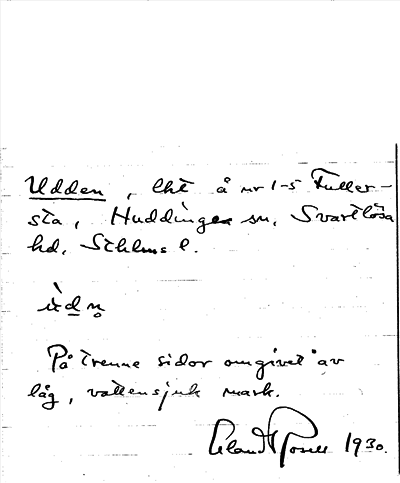 Udden, lht å nr 1-5 Fuller-
sta, Huddinge sn, Svartlösa
hd, Sthlms l.
ùdn̥
På trenne sidor omgivet av
låg, vattensjuk mark.
1930.